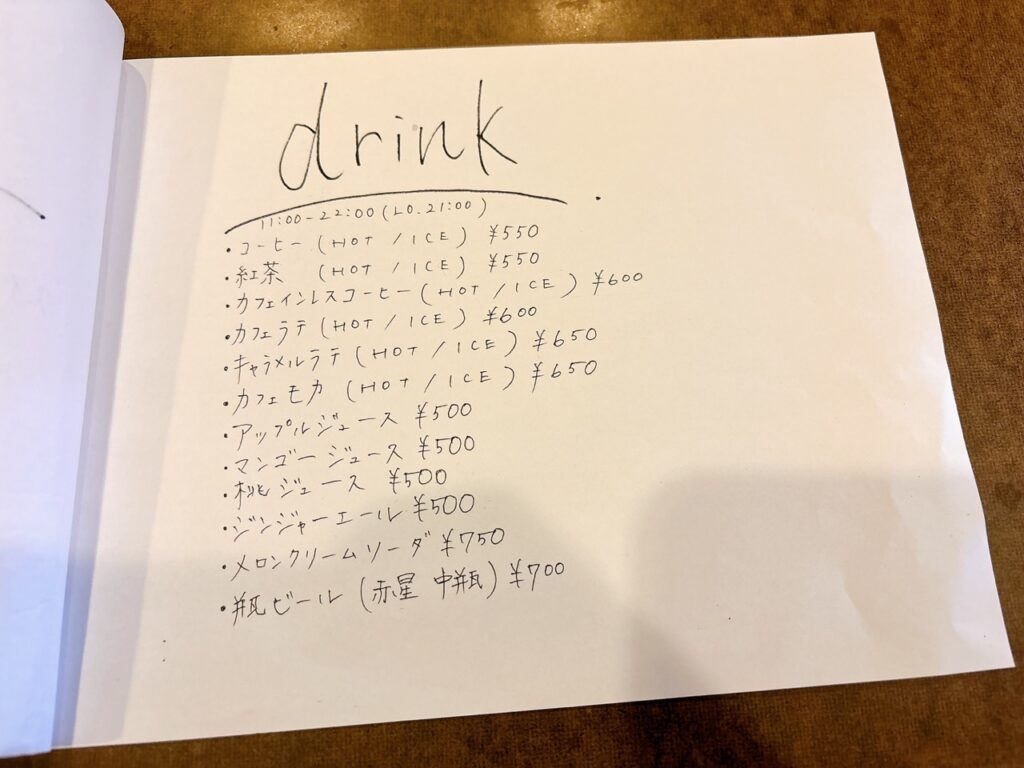 drink
11:00-22:00(LO.21:00)
・コーヒー(HOT/ICE) ¥550
・紅茶 (HOT/ICE) ¥550
・カフェインレスコーヒー(HOT/ICE) ¥600
・カフェラテ(HOT/ICE) ¥600
・キャラメルラテ(HOT/ICE) ¥650
・カフェモカ(HOT/ICE) ¥650
・アップルジュース ¥500
・マンゴージュース ¥500
・桃ジュース ¥500
・ジンジャーエール ¥500
・メロンクリームソーダ ¥750
・瓶ビール(赤星 中瓶) ¥700